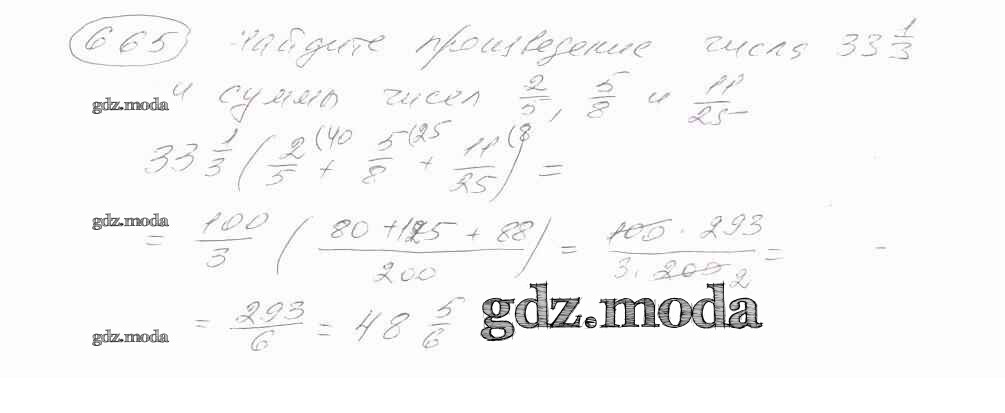 665 Найдите произведение числа 33 1/3
и суммы чисел 2/5, 5/8 и 11/25
gdz.moda
33 1/3 ( 2/5 (40 + 5/8 (25 + 11/25 (8 ) =
gdz.moda
= 100/3 ( 80 + 125 + 88 / 200 ) = 100 · 293 / 3 · 200 2 =
= 293/6 = 48 5/6
gdz.moda
gdz.moda